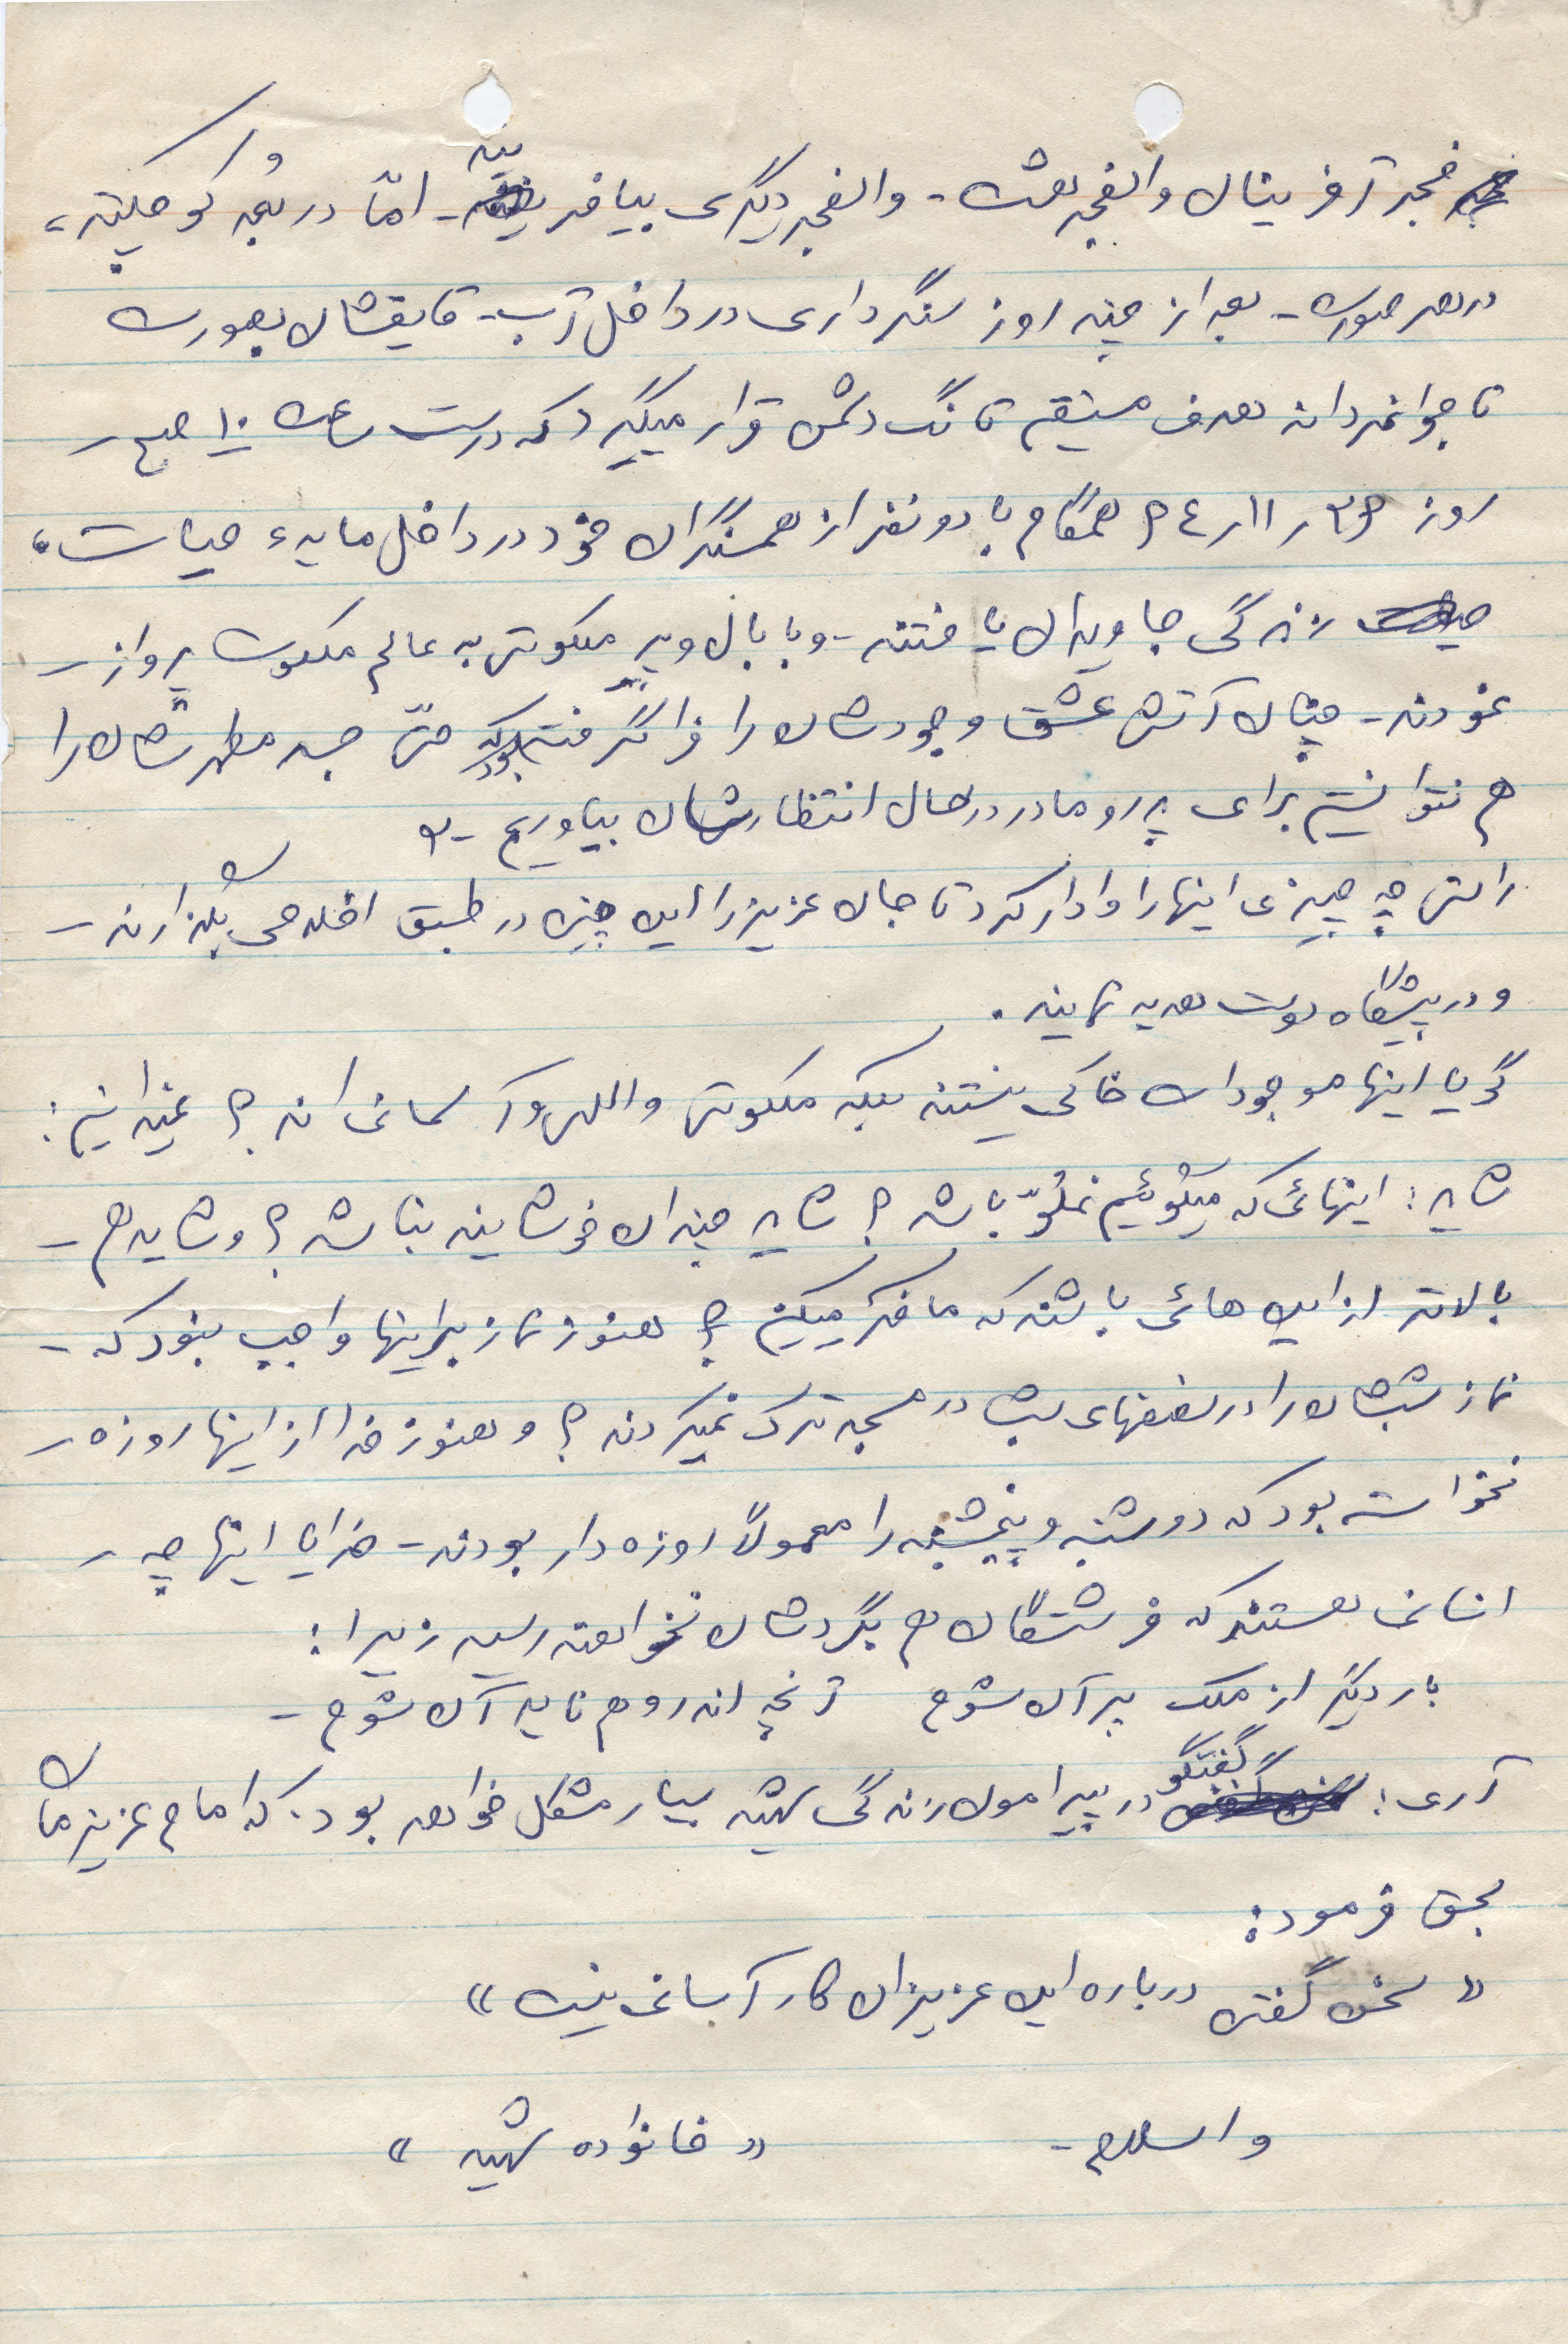 فجر آفرینان والفجر هشت - والفجر دیگری بیافرینند - امّا در بُعد کوچکتر،
در هر صورت - بعد از چند روز سنگرداری در داخل آب - قایقشان بصورت
ناجوانمردانه هدف مستقیم تانگ دشمن قرار میگیرد که درست ساعت ۱۰ صبح -
روز ۲۳ر۱۱ر۶۴ همگام با دو نفر از همسنگران خود در داخل مایهء حیات،
زندگی جاویدان یافتند - و با بال و پر ملکوتی به عالم ملکوت پرواز -
نمودند - چنان آتش عشق وجودشان را فراگرفته بود که حتّی جسد مطهرشان را
هم نتوانستیم برای پدر و مادر در حال انتظارشان بیاوریم -
راستی چه چیزی اینها را وادار کرد تا جان عزیز را این چنین در طبق اخلاص بگذارند -
و در پیشگاه دوست هدیه نمایند.
گویا اینها موجودات خاکی نیستند بلکه ملکوتی و اللهی و آسمانی اند ؟ نمیدانیم :
شاید : اینهائی که میگوئیم غُلوّ باشد ؟ شاید چندان خوشایند نباشد ؟ و شاید هم -
بالاتر از این هائی باشند که ما فکر میکنیم ؟ هنوز نماز بر اینها واجب نبود که -
نماز شبشان را در نصفهای شب در مسجد ترک نمیکردند ؟ و هنوز خدا از اینها روزه -
نخواسته بود که دوشنبه و پنجشنبه را معمولاً روزه دار بودند - خدایا اینها چه -
انسانی هستند که فرشتگان هم بگردشان نخواهند رسید زیرا :
بار دیگر از ملک پرآن شوم   آنچه اندر وهم ناید آن شوم -
آری : گفتگو در پیرامون زندگی شهید بسیار مشکل خواهد بود. که امام عزیزمان
بحق فرمود :
« سخن گفتن درباره این عزیزان کار آسانی نیست »
والسلام -   « خانواده شهید »